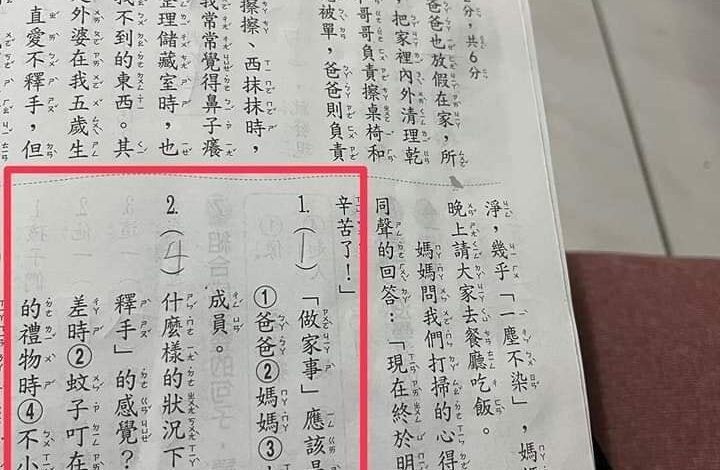 分，共6分
爸爸也放假在家，所
，把家裡內外清理乾
哥哥負責擦桌椅和
被單，爸爸則負責
擦擦、西抹抹時，
我常常覺得鼻子癢
整理儲藏室時，也
找不到的東西。其
是外婆在我五歲生
直愛不釋手，但
淨，幾乎「一塵不染」，媽
晚上請大家去餐廳吃飯。
媽媽問我們打掃的心得
同聲的回答：「現在終於明
辛苦了！」
1. (1)「做家事」應該是
①爸爸②媽媽③
成員。
2. (4) 什麼樣的狀況下
釋手」的感覺？
差時②蚊子叮在
的禮物時④不小